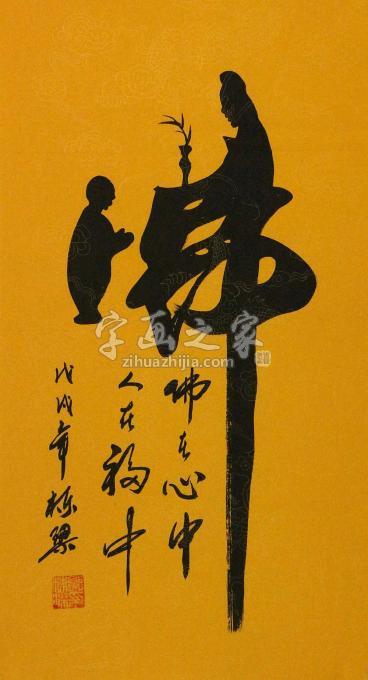 佛
佛在心中
人在福中
戊戌年 栋梁
字画之家
zihuazhijia.com